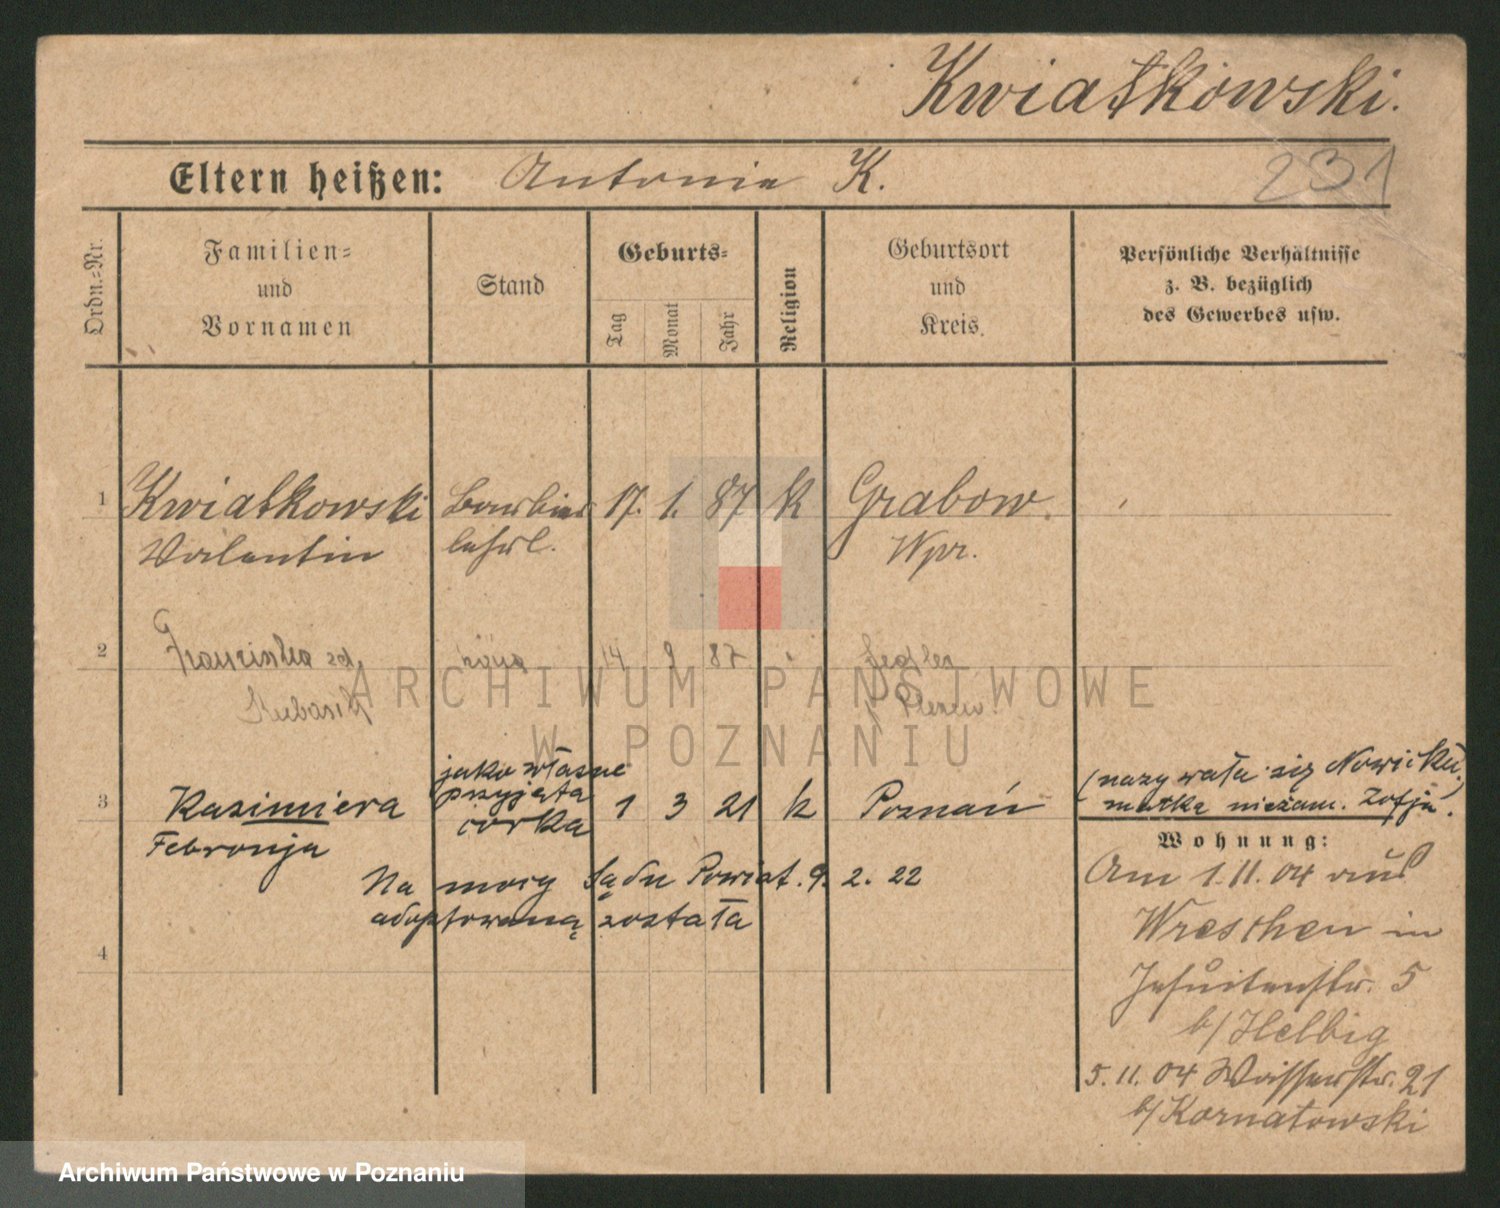 Kwiatkowski.
231
Eltern heißen: Antonie K.
Ordn.-Nr.
Familien-
und
Vornamen
Stand
Geburts-
Tag
Monat
Jahr
Religion
Geburtsort
und
Kreis.
Persönliche Verhältnisse
z. B. bezüglich
des Gewerbes usw.
1 Kwiatkowski Barbier 17. 1. 87 k Grabow.
Valentin lehrl. Wpr.
2 Franciszka 14 9 87
Kubasik
jako własne
przyjęta
córka
3 Kazimiera 1 3 21 k Poznań
Febronja
(nazywała się Nowicka,
matka niezam. Zofja).
Na mocy Sądu Powiat. 9. 2. 22
adoptowaną została
4
Wohnung:
Am 1.11.04 aus
Wreschen in
Jesuitenstr. 5
b/Helbig
5.11.04 Wasserstr. 21
b/Kornatowski
ARCHIWUM PAŃSTWOWE
W POZNANIU
Archiwum Państwowe w Poznaniu